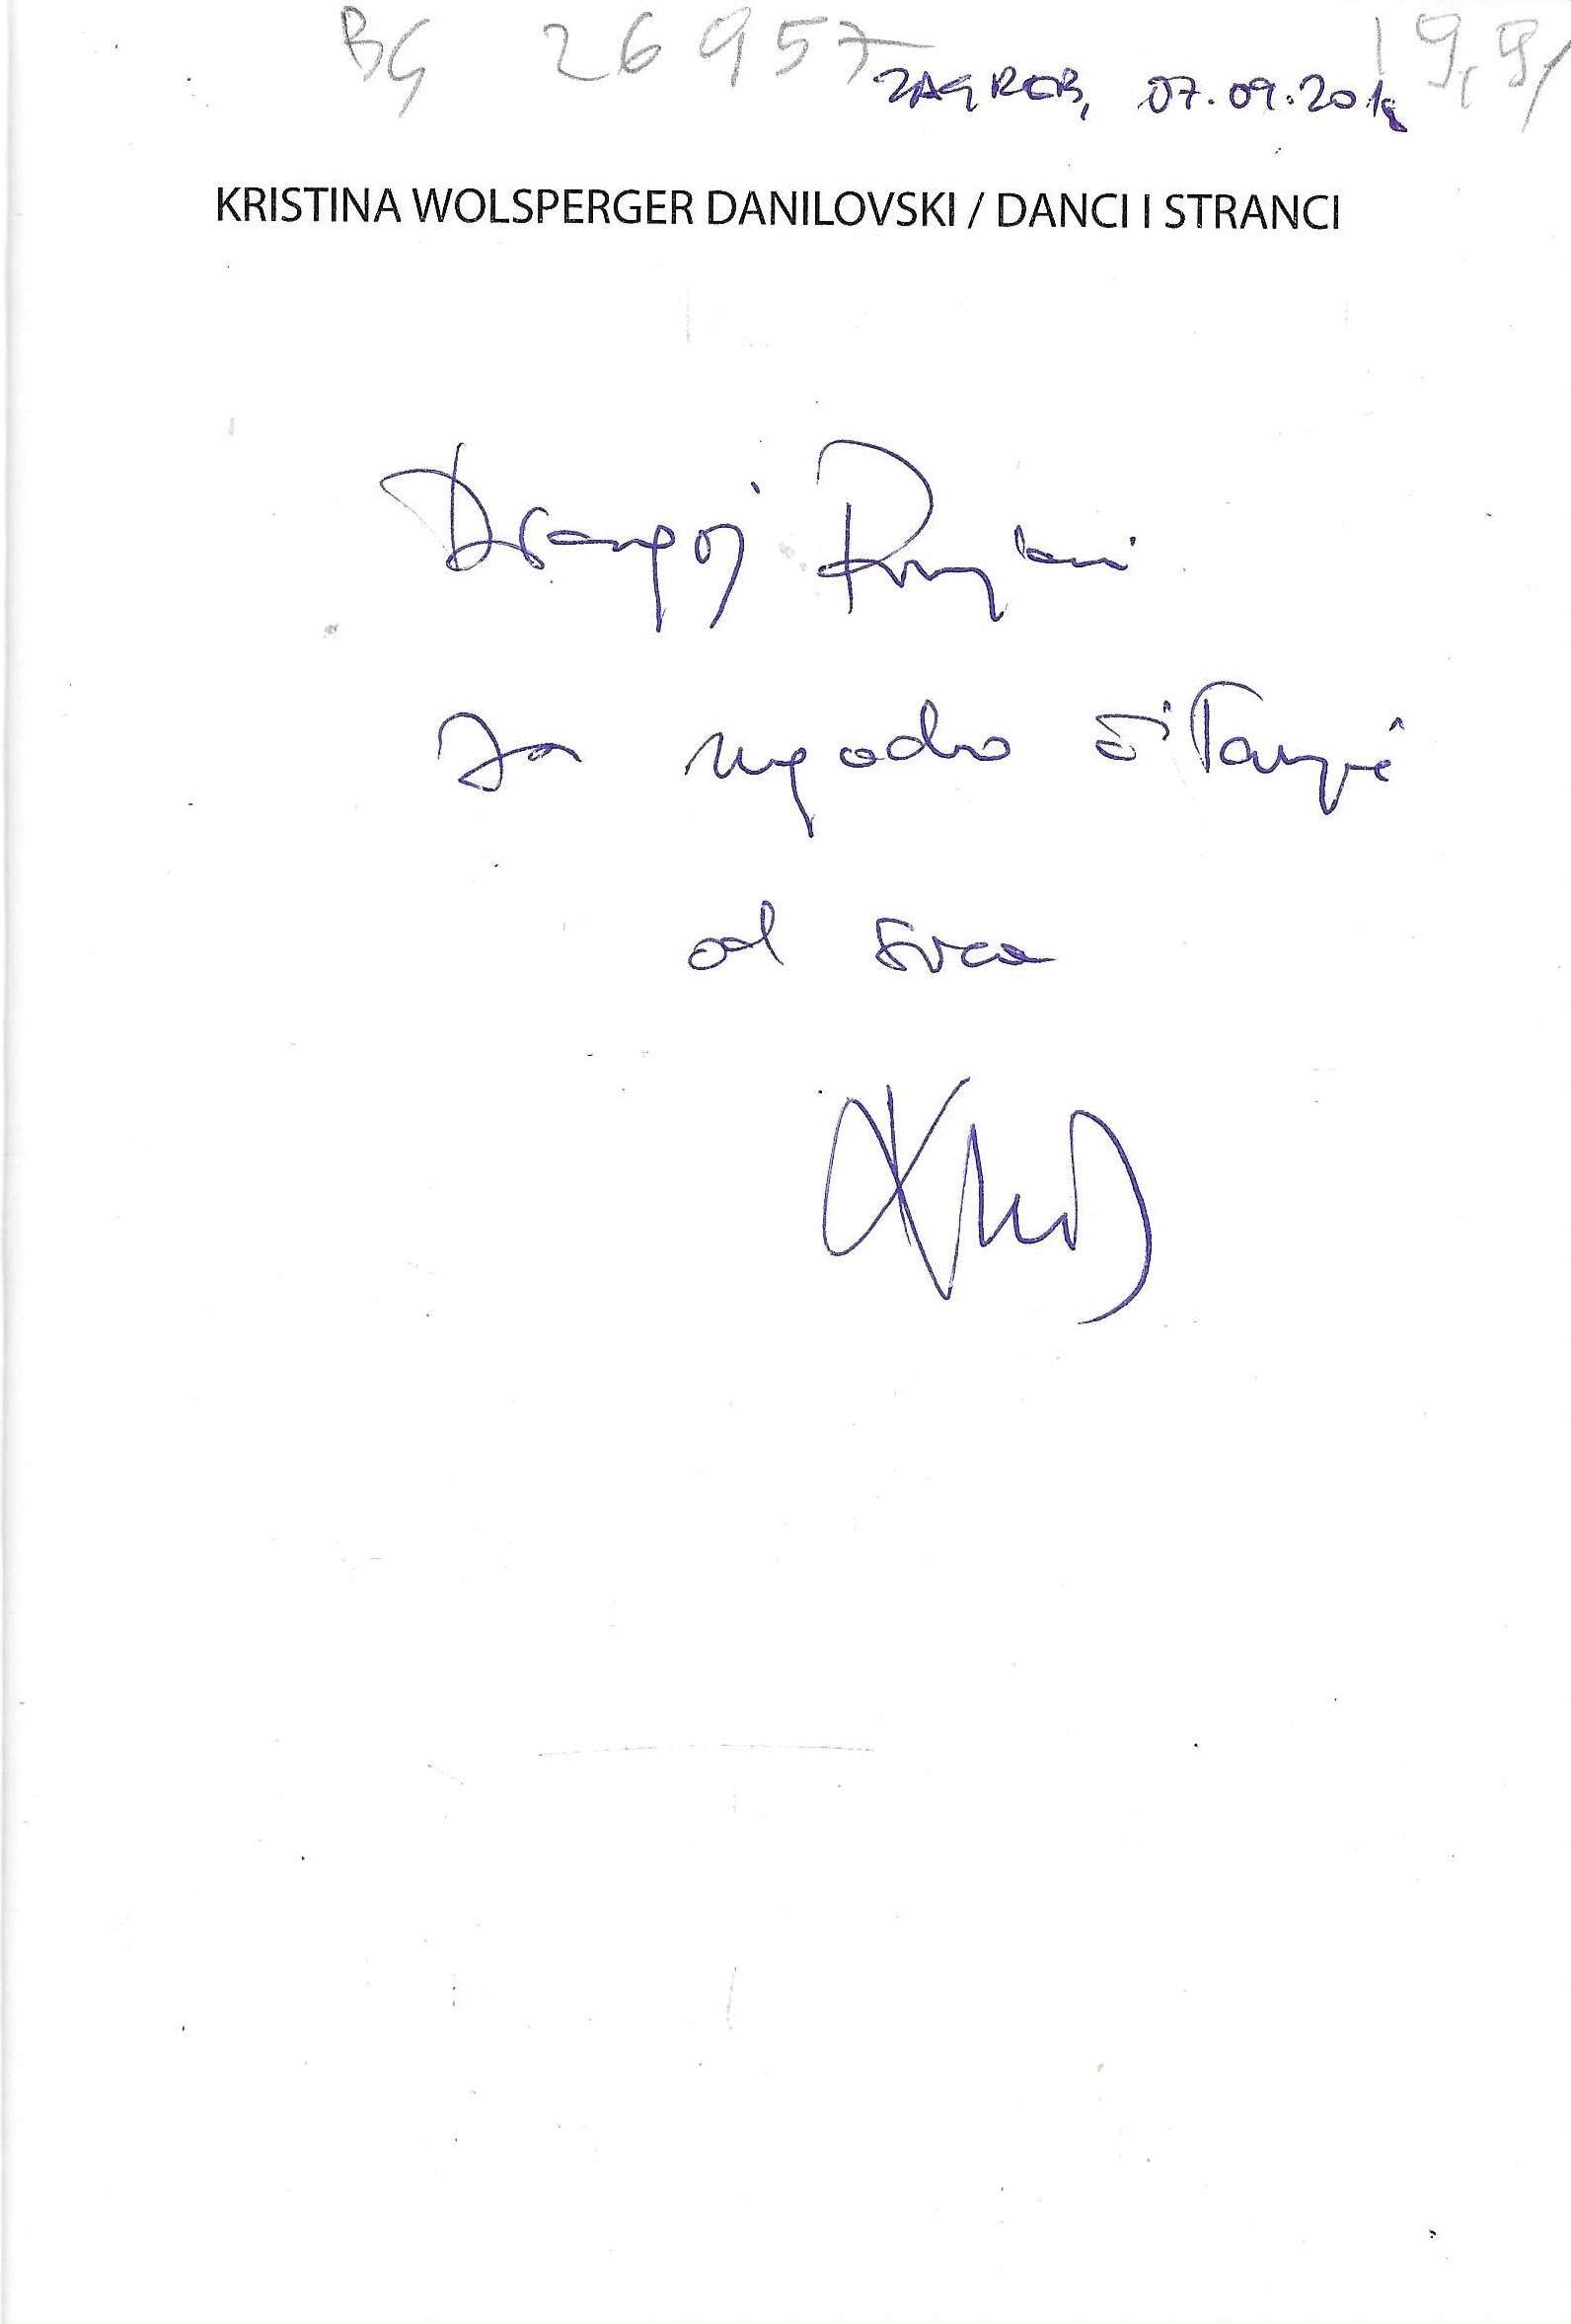 BG 26957 19,9/
ZAGREB, 07.09.201
KRISTINA WOLSPERGER DANILOVSKI / DANCI I STRANCI
Dragoj
Za ugodno čitanje
od srca